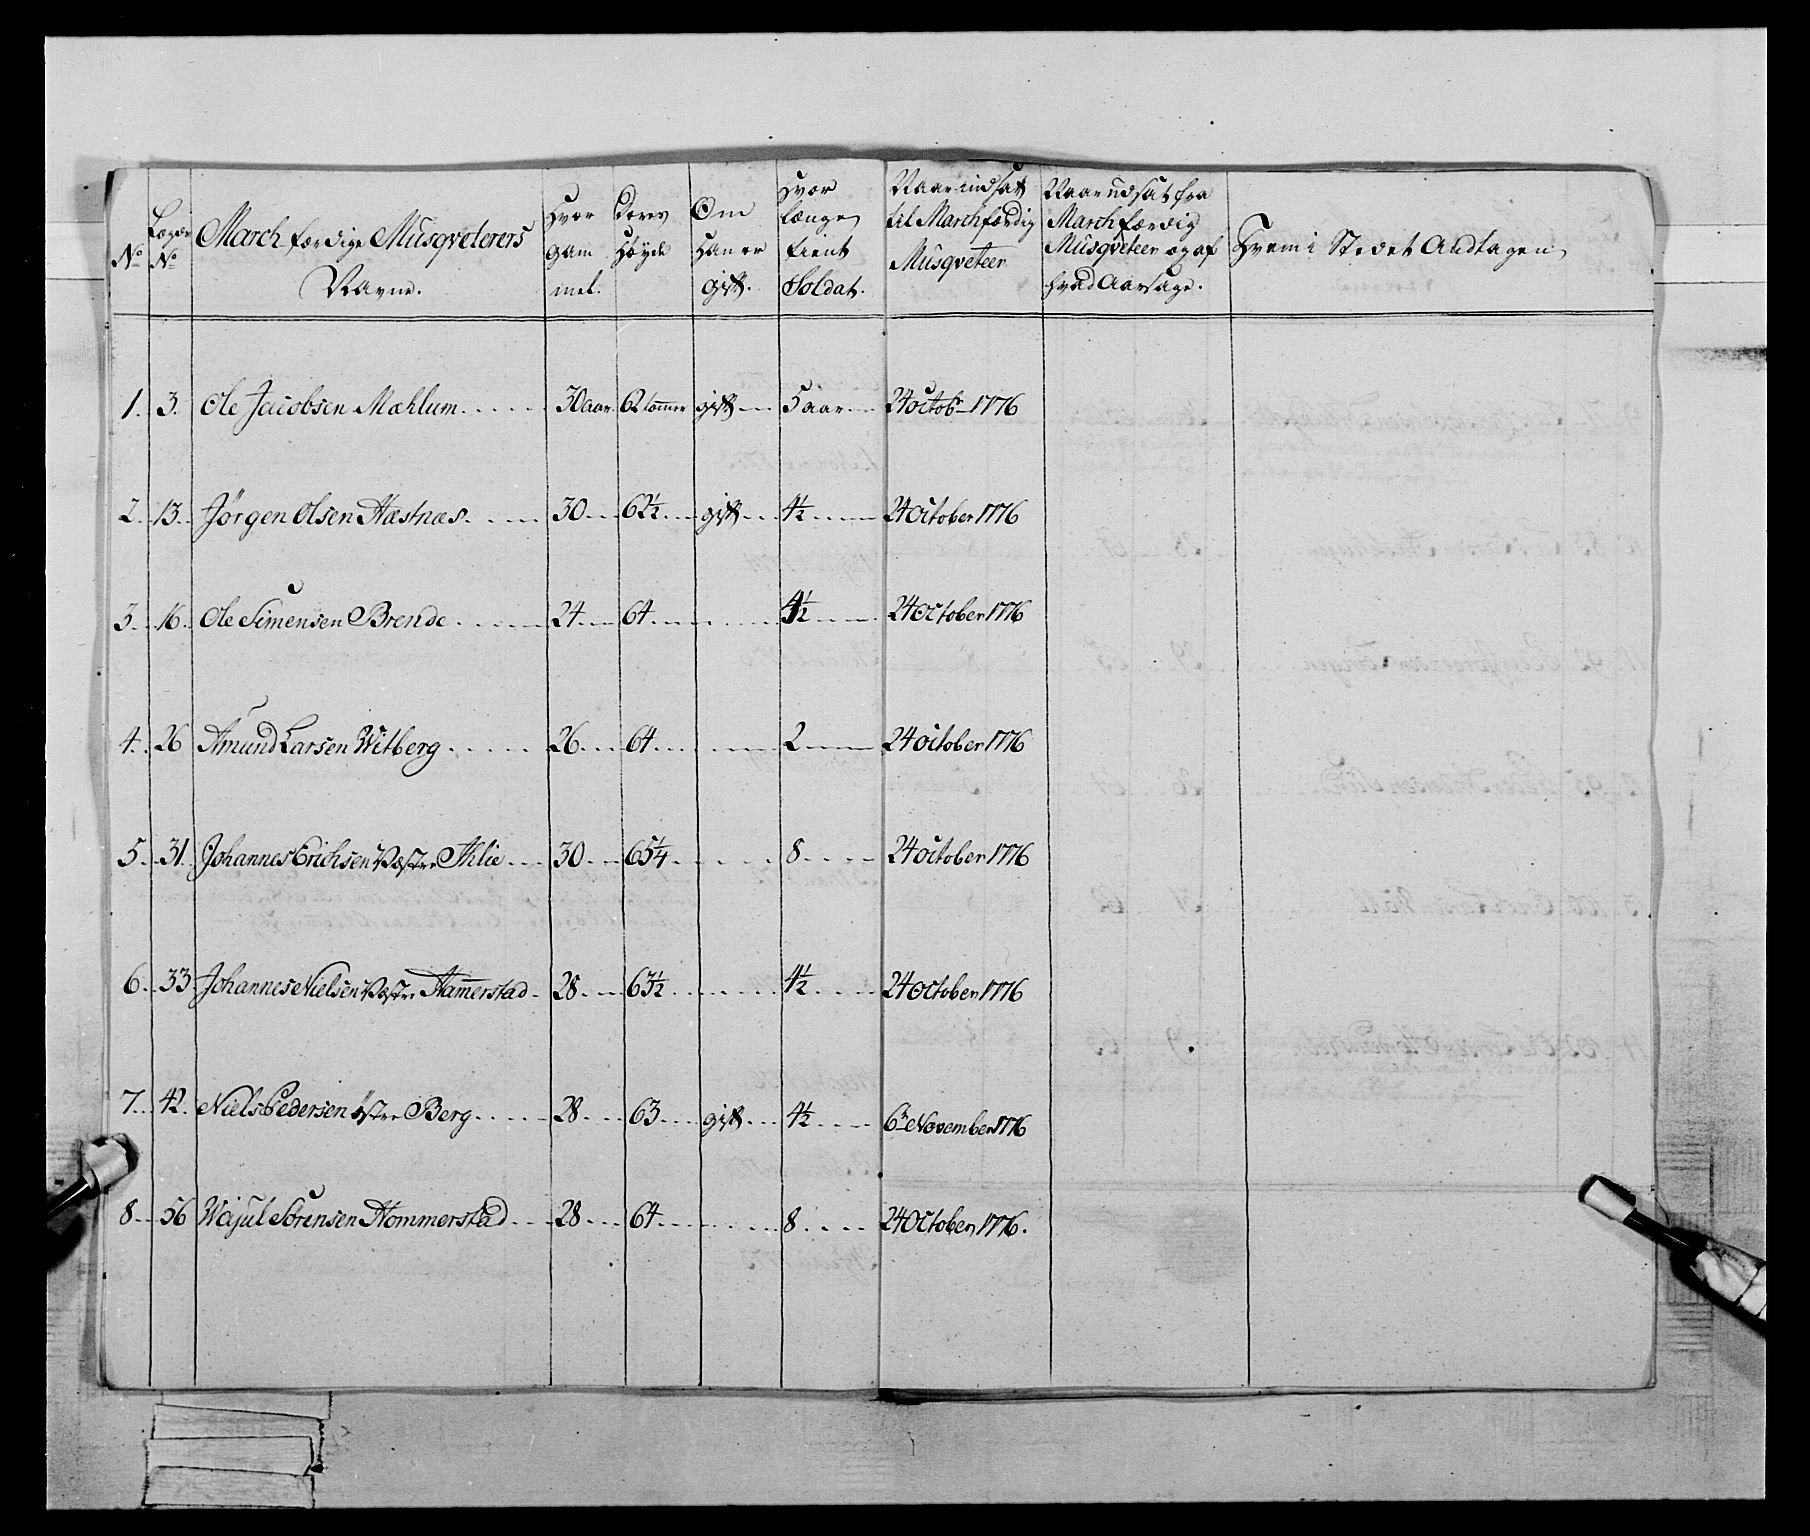 No
Lægds No
March færdige Musqveterers Navne.
Hvor gam mel.
Deres Høyde
Om Han er gift.
Hvor længe tient Soldat.
Naar indsat til March færdig Musqveteer
Naar udsat fra March færdig Musqveteer og af hvad Aarsage.
Hvem i Stedet Andtagen
1. 3. Ole Jacobsen Mæhlum 30 aar 62 tommer gift 5 aar 24 octobr 1776
2. 13. Jörgen Olsen Næstnæs 30 62½ gift 4½ 24 october 1776
3. 16. Ole Simensen Brende 24 64 4½ 24 October 1776
4. 26 Amund Larsen Witberg 26 64 2 24 october 1776
5. 31. Johannes Erichsen Væstre Ihlie 30 65¼ 8 24 october 1776
6. 33 Johannes Nielsen Væstre Hamerstad 28 63½ 4½ 24 October 1776
7. 42. Niels Pedersen östre Berg 28 63 gift 4½ 6te November 1776
8. 56 Wajul Sörensen Hommerstad 28 64 8 24 October 1776.